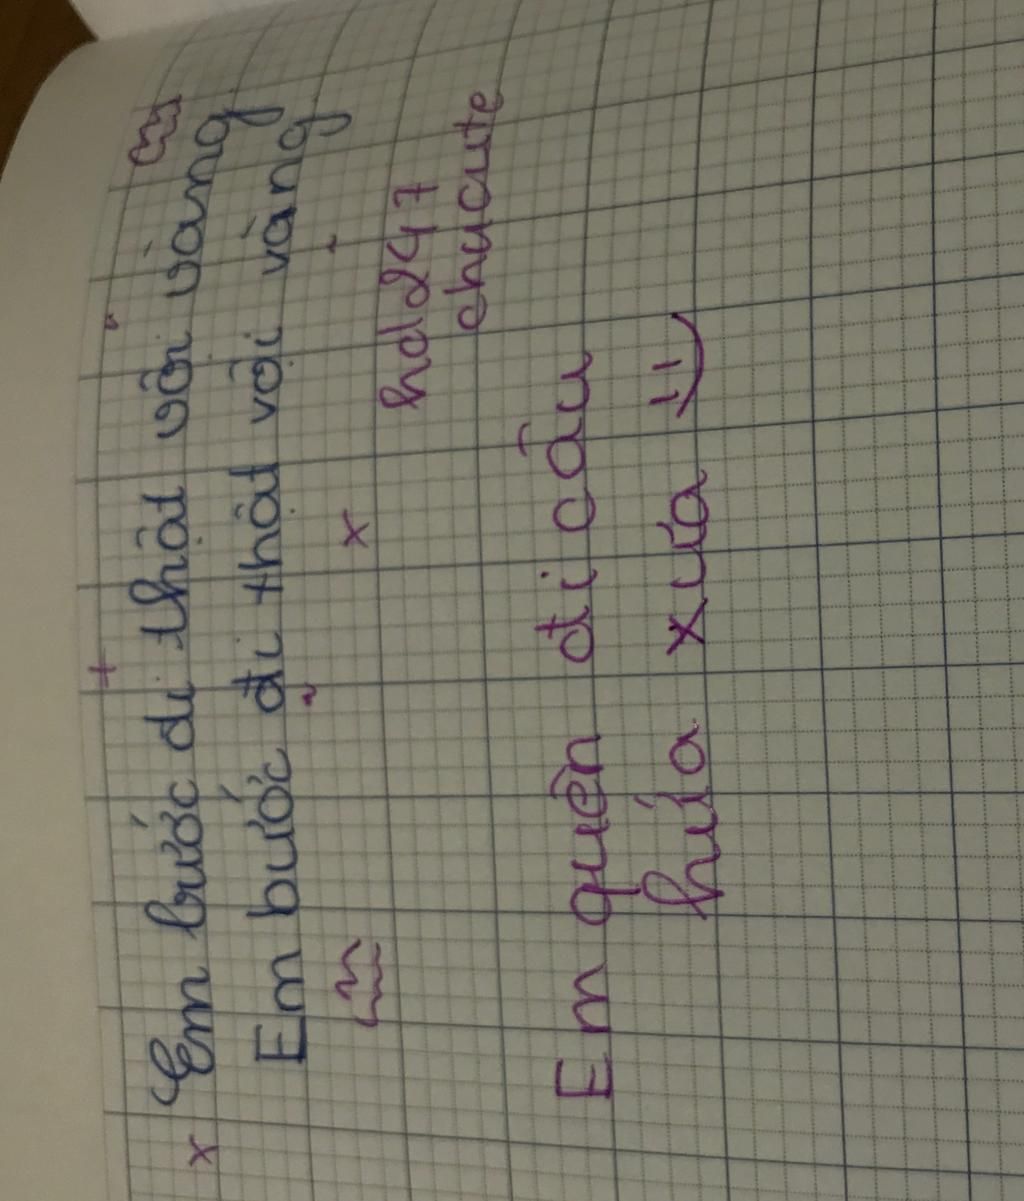 Em bước đi thật vội vàng
Em bước đi thật vội vàng
hd247
chucute
Em quên đi câu
hứa xưa =)